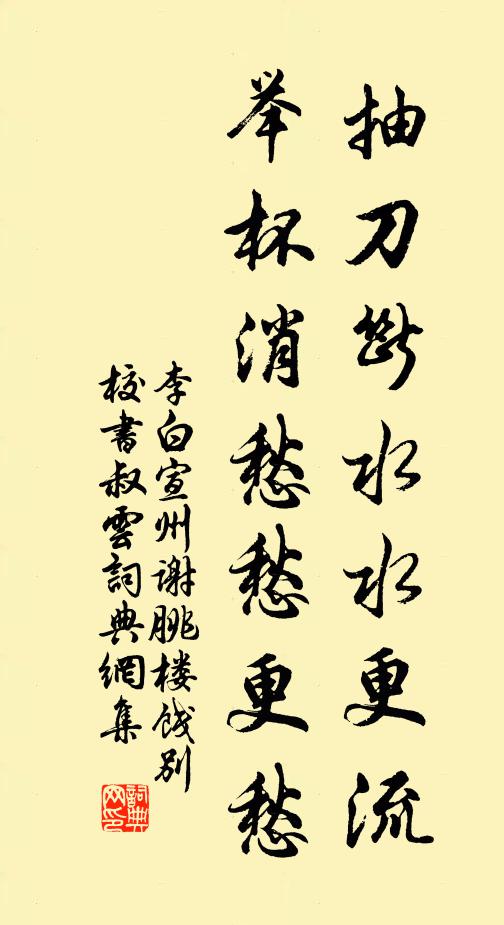 抽刀断水水更流
举杯消愁愁更愁
李白宣州谢朓楼饯别
校書叔雲詞典網集
詞典网印